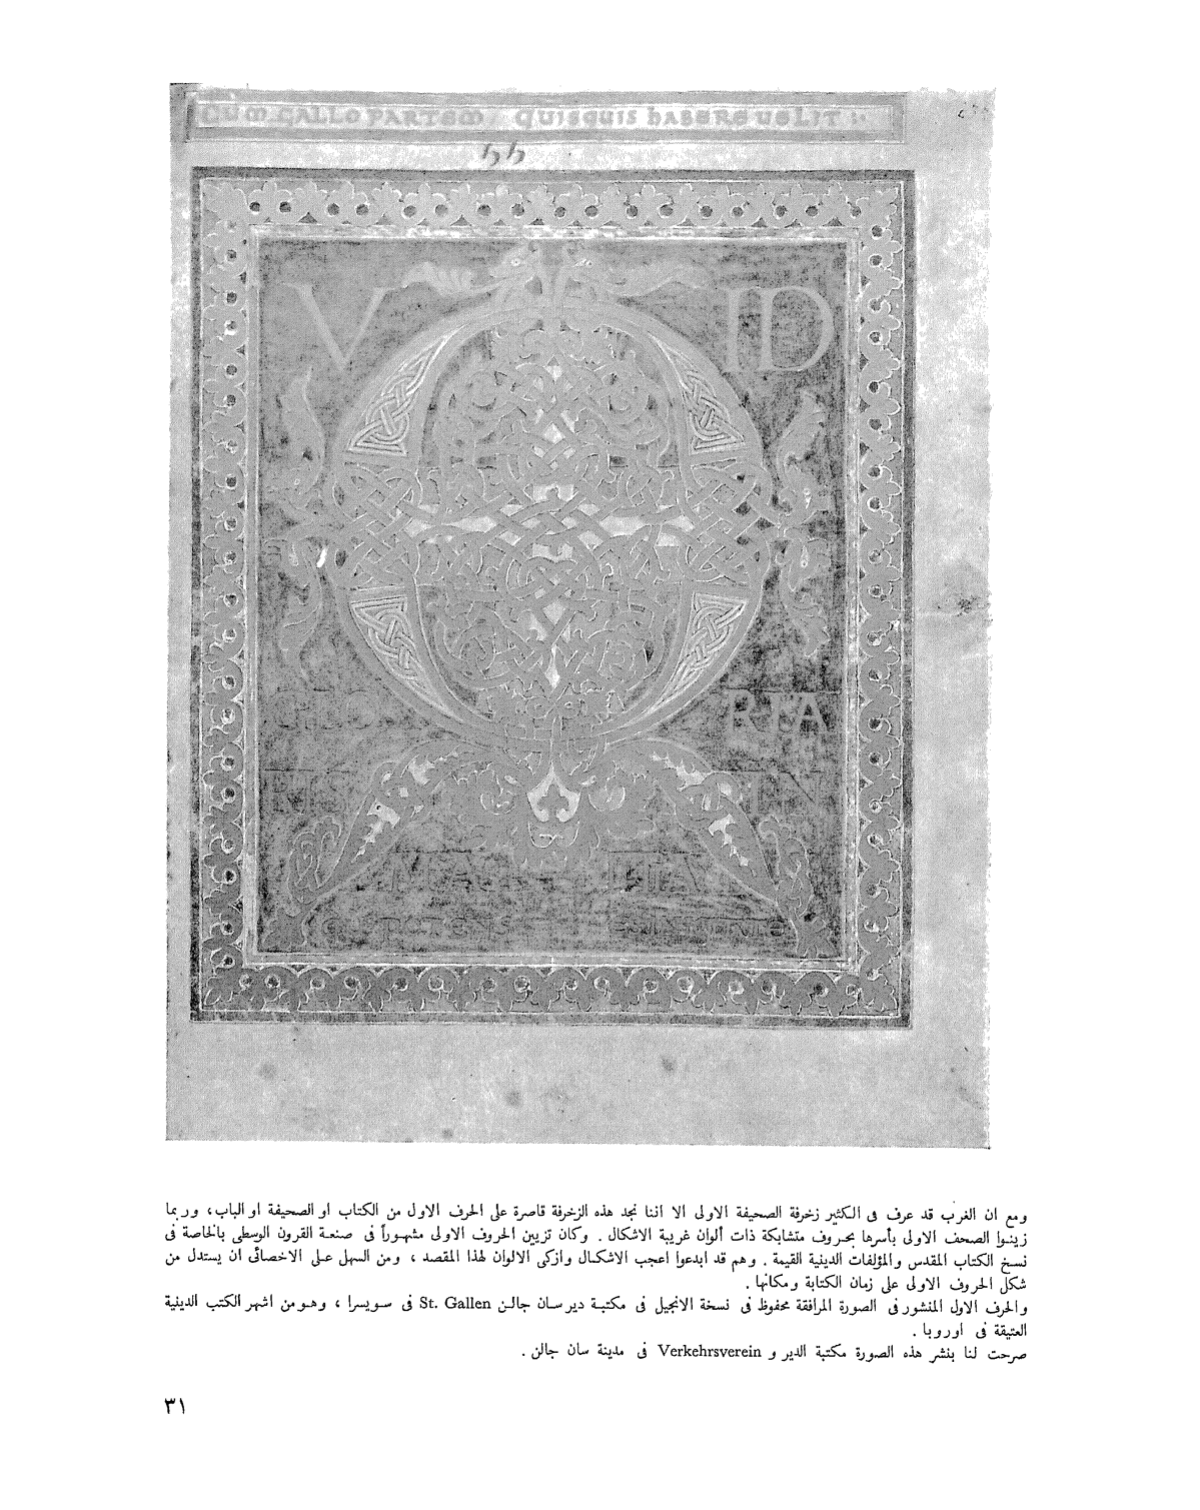 CUM GALLO PARTEM QUISQUIS HABERE UELIT
hh
V ID
RIA
IN
ومع ان الغرب قد عرف فى الكثير زخرفة الصحيفة الاولى الا اننا نجد هذه الزخرفة قاصرة على الحرف الاول من الكتاب او الصحيفة او الباب، وربما
زينوا الصحف الاولى بأسرها بحروف متشابكة ذات ألوان غريبة الاشكال . وكان تزيين الحروف الاولى مشهوراً فى صنعة القرون الوسطى بالخاصة فى
نسخ الكتاب المقدس والمؤلفات الدينية القيمة . وهم قد ابدعوا اعجب الاشكال وازكى الالوان لهذا المقصد ، ومن السهل على الاخصائى ان يستدل من
شكل الحروف الاولى على زمان الكتابة ومكانها .
والحرف الاول المنشور فى الصورة المرافقة محفوظ فى نسخة الانجيل فى مكتبة دير سان جالن St. Gallen فى سويسرا ، وهو من اشهر الكتب الدينية
العتيقة فى اوروبا .
صرحت لنا بنشر هذه الصورة مكتبة الدير و Verkehrsverein فى مدينة سان جالن .
٣١